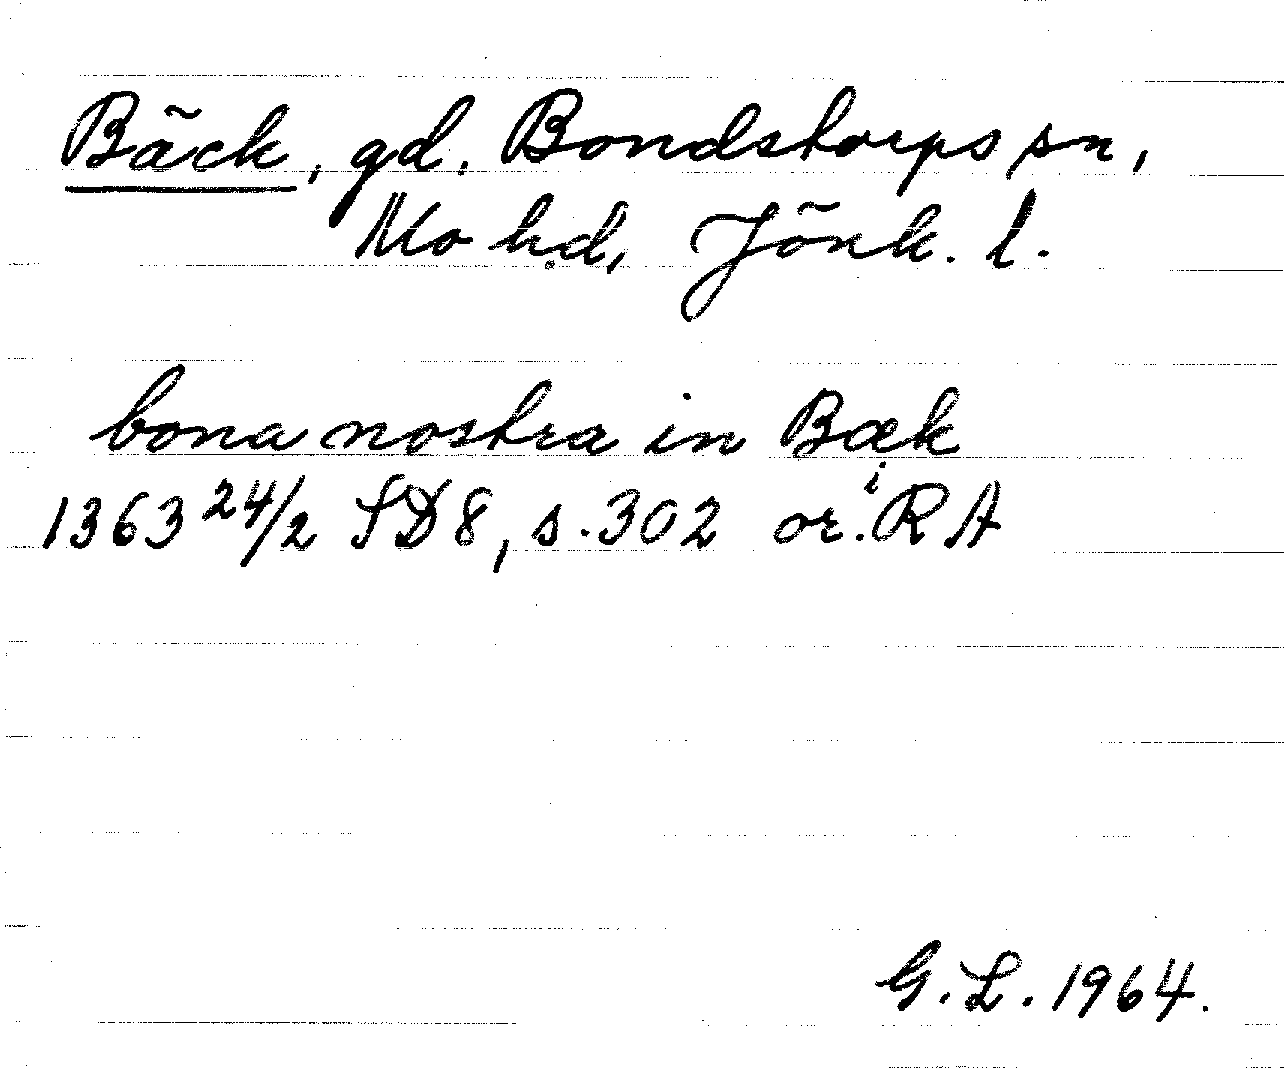 Bäck, gd. Bondstorps sn,
Mo hd, Jönk. l.
bona nostra in Bæk
1363 24/2 SD 8, s. 302 or. i RA
G. L. 1964.